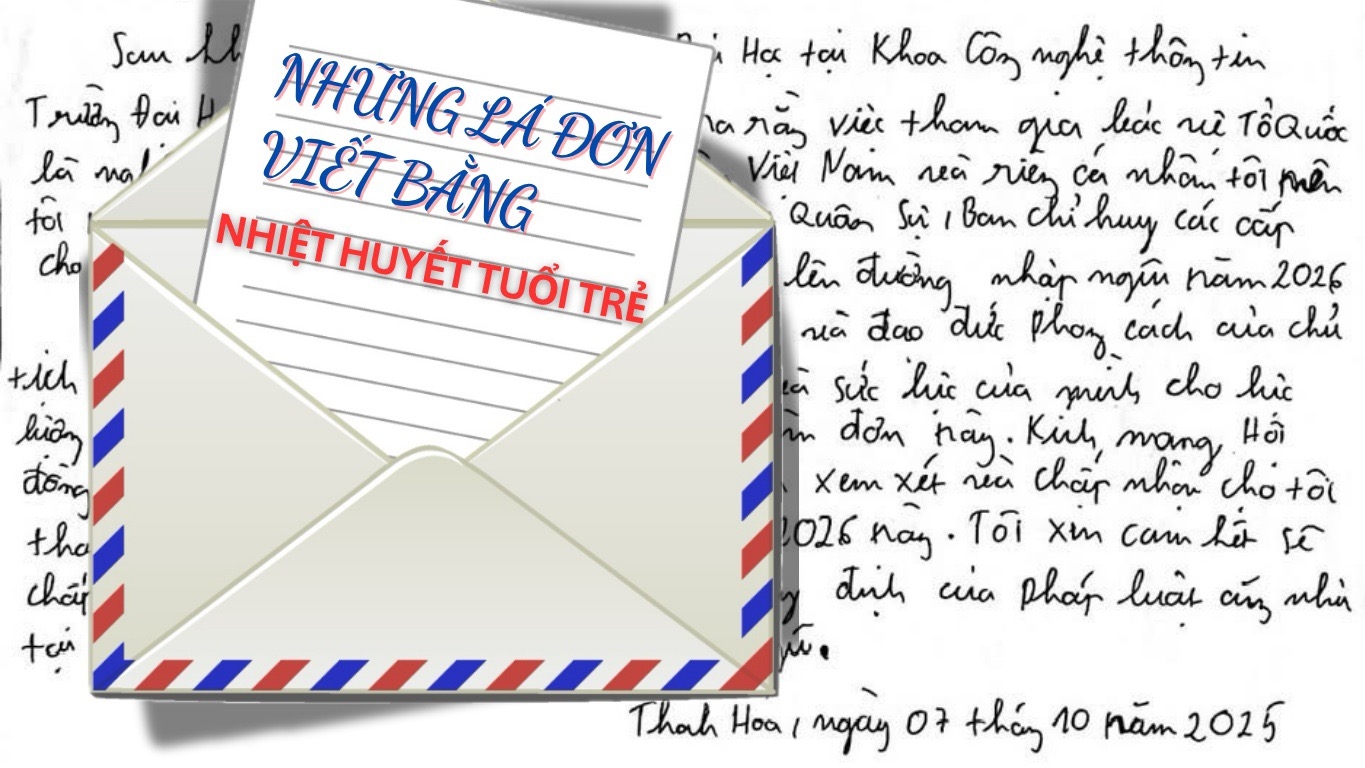 NHỮNG LÁ ĐƠN
VIẾT BẰNG
NHIỆT HUYẾT TUỔI TRẺ
Sau Học tại Khoa Công nghệ thông tin
Trường Đại H rằng việc tham gia bảo vệ Tổ Quốc
là Việt Nam và riêng cá nhân tôi nên
tôi Quân Sự, Ban chỉ huy các cấp
cho lên đường nhập ngũ năm 2026
và đạo đức phong cách của chủ
tịch sức lực của mình cho lực
lượng đơn này. Kính mong Hội
đồng xem xét và chấp nhận cho tôi
2026 này. Tôi xin cam kết sẽ
chấp định của pháp luật cũng như
tại
Thanh Hoa, ngày 07 tháng 10 năm 2025